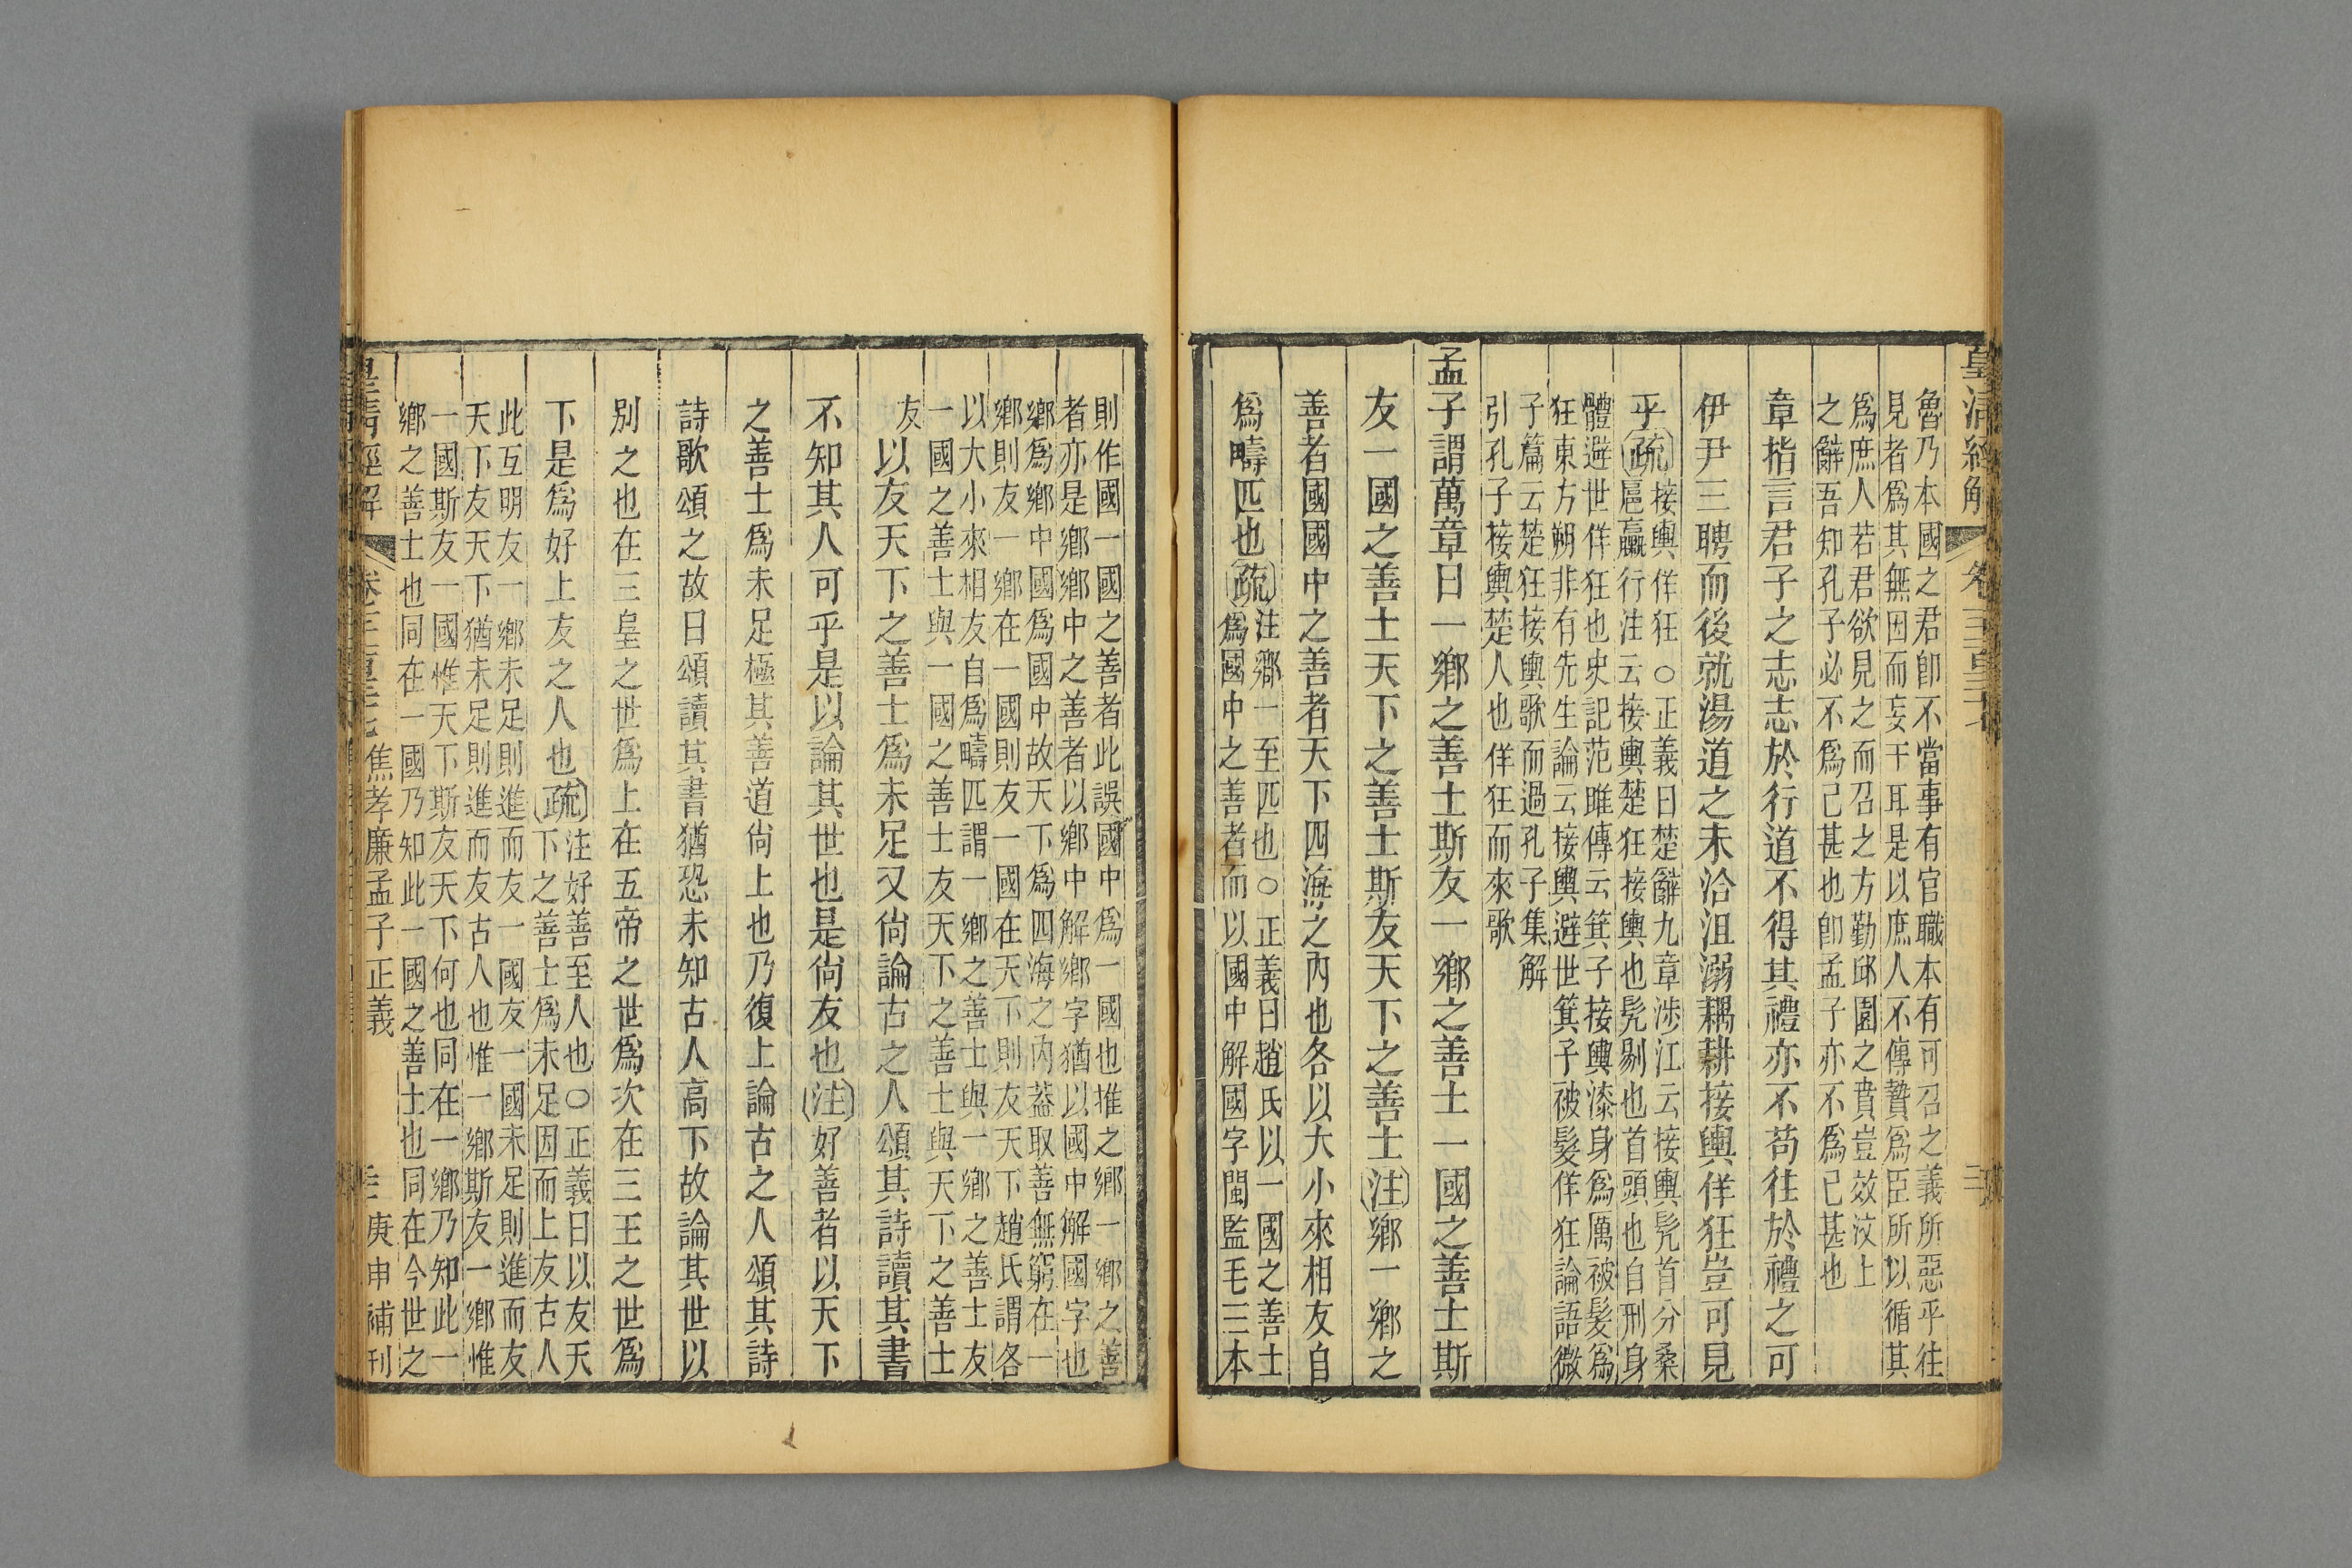 皇清經解
魯乃本國之君卽不當事有官職本有可召之義所惡乎往
見者爲其無因而妄干耳是以庶人不傳贄爲臣所以循其
爲庶人若君欲見之而召之方勤邱園之賁豈效汶上
之辭吾知孔子必不爲已甚也卽孟子亦不爲已甚也
章指言君子之志志於行道不得其禮亦不苟往於禮之可
伊尹三聘而後就湯道之未洽沮溺耦耕接輿佯狂豈可見
乎疏
接輿佯狂○正義曰楚辭九章涉江云接輿髡首兮桑
扈臝行注云接輿楚狂接輿也髡剔也首頭也自刑身
體避世佯狂也史記范雎傳云箕子接輿漆身爲厲被髮爲
狂東方朔非有先生論云接輿避世箕子被髮佯狂論語微
子篇云楚狂接輿歌而過孔子集解
引孔子接輿楚人也佯狂而來歌
孟子謂萬章曰一鄉之善士斯友一鄉之善士一國之善士斯
友一國之善士天下之善士斯友天下之善士注鄉一鄉之
善者國國中之善者天下四海之內也各以大小來相友自
爲疇匹也疏
注鄉一至匹也○正義曰趙氏以一國之善士
爲國中之善者而以國中解國字閩監毛三本
則作國一國之善者此誤國中爲一國也推之鄉一鄉之善
者亦是鄉鄉中之善者以鄉中解鄉字猶以國中解國字也
鄉爲鄉中國爲國中故天下爲四海之內蓋取善無窮在一
鄉則友一鄉在一國則友一國在天下則友天下趙氏謂各
以大小來相友自爲疇匹謂一鄉之善士與一鄉之善士友
一國之善士與一國之善士友天下之善士與天下之善士
友
以友天下之善士爲未足又尙論古之人頌其詩讀其書
不知其人可乎是以論其世也是尙友也注好善者以天下
之善士爲未足極其善道尙上也乃復上論古之人頌其詩
詩歌頌之故曰頌讀其書猶恐未知古人高下故論其世以
別之也在三皇之世爲上在五帝之世爲次在三王之世爲
下是爲好上友之人也疏
注好善至人也○正義曰以友天
下之善士爲未足因而上友古人
此互明友一鄉未足則進而友一國友一國未足則進而友
天下友天下猶未足則進而友古人也惟一鄉斯友一鄉惟
一國斯友一國惟天下斯友天下何也同在一鄉乃知此一
鄉之善士也同在一國乃知此一國之善士也同在今世之
皇清經解
焦孝廉孟子正義
庚申補刊